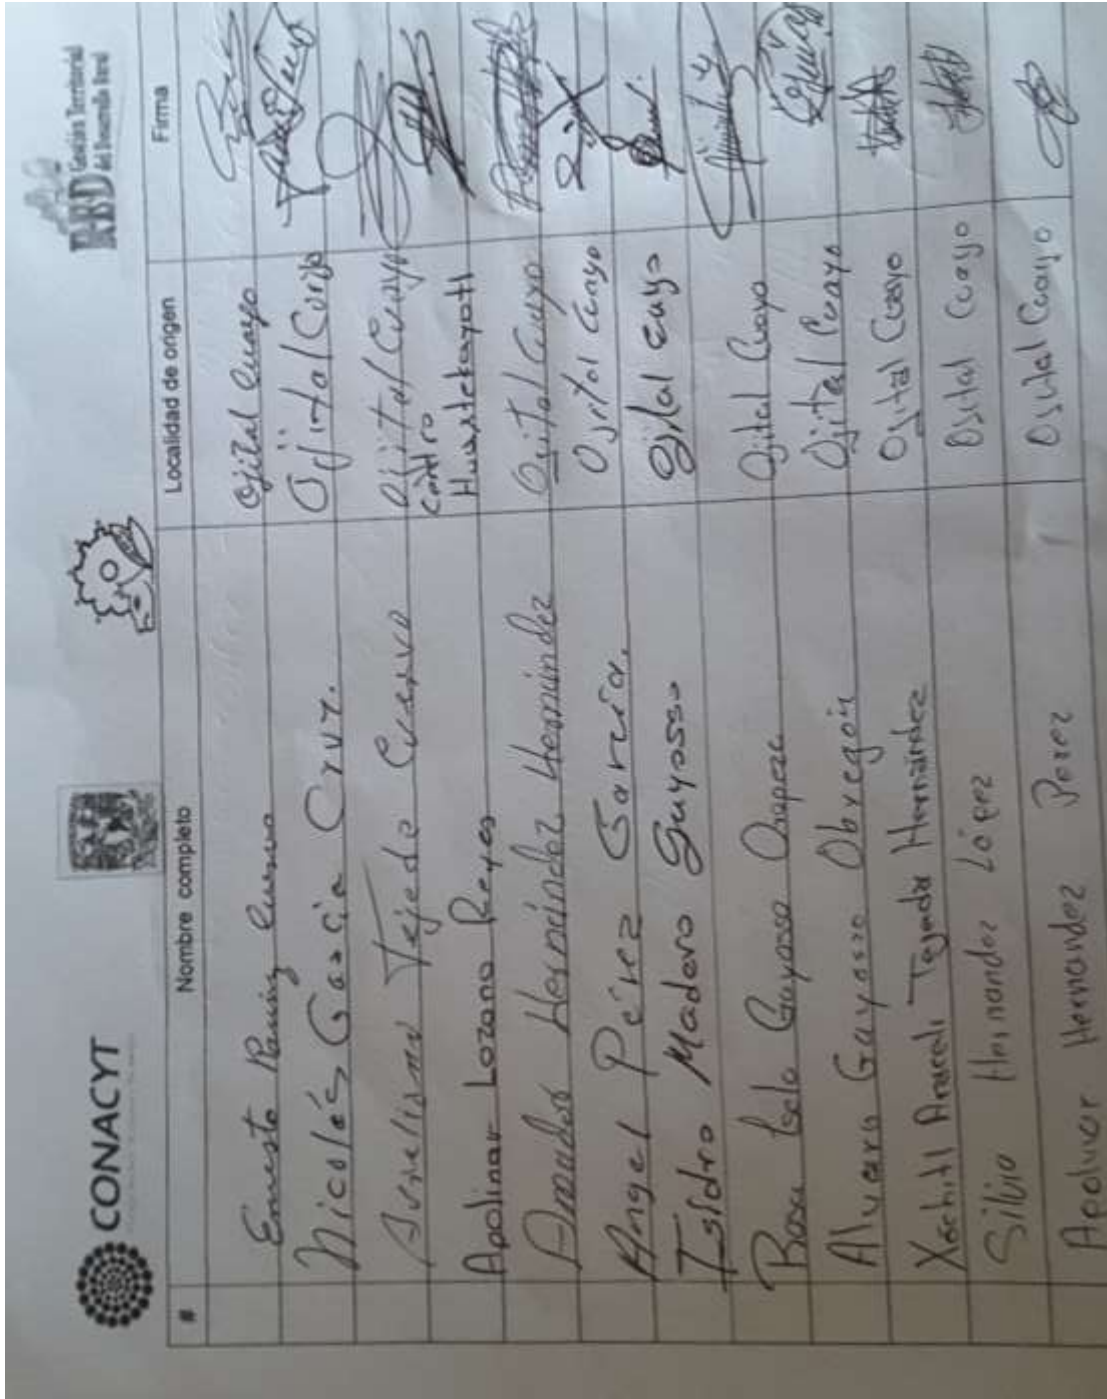 CONACYT
RBD Gestión Territorial
del Desarrollo Rural
# Nombre completo Localidad de origen Firma
Ernesto Cuervo Ojital Cuayo
Nicolás García Cruz. Ojital Cuayo
Aureliano Tejeda Cuervo Ojital Cuayo
Apolinar Lozano Reyes Centro Huastekayotl
Amador Hernández Hernández Ojital Cuayo
Angel Pérez García. Ojital Cuayo
Isidro Madero Guyosso Ojital Cuyo
Rosa Isela Gayosso Ojital Cuayo
Alvaro Gayosso Obregón Ojital Cuayo
Xóchitl Araceli Tejeda Hernández Osital Cuayo
Silvio Hernandez López Osital Cuayo
Hernandez Perez Osital Cuayo